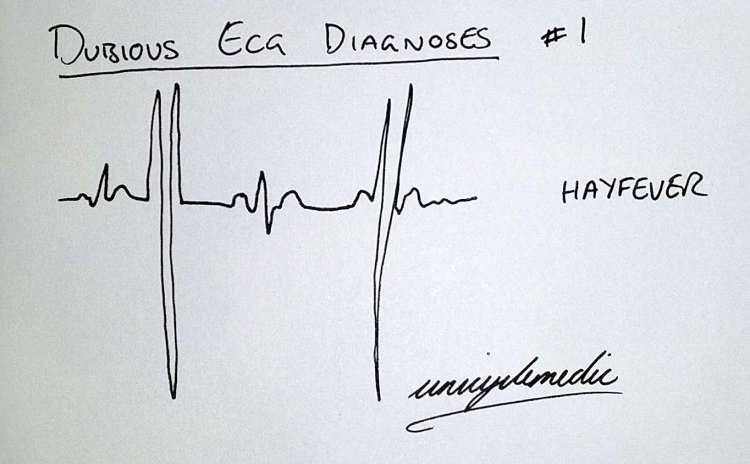 DUBIOUS ECG DIAGNOSES #1
HAYFEVER
unicyclemedic